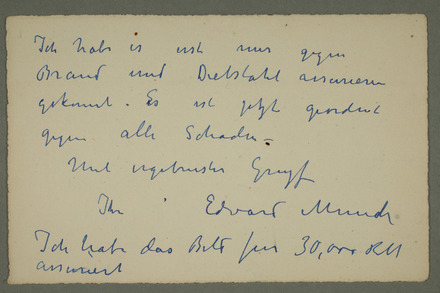 Ich habe es erst nur gegen
Brand und Diebstahl assurieren
gekonnt. Es ist jetzt geordnet
gegen alle Schaden.
Mit ergebenster Gruss
Ihr Edvard Munch
Ich habe das Bild für 30,000 RM
assuriert